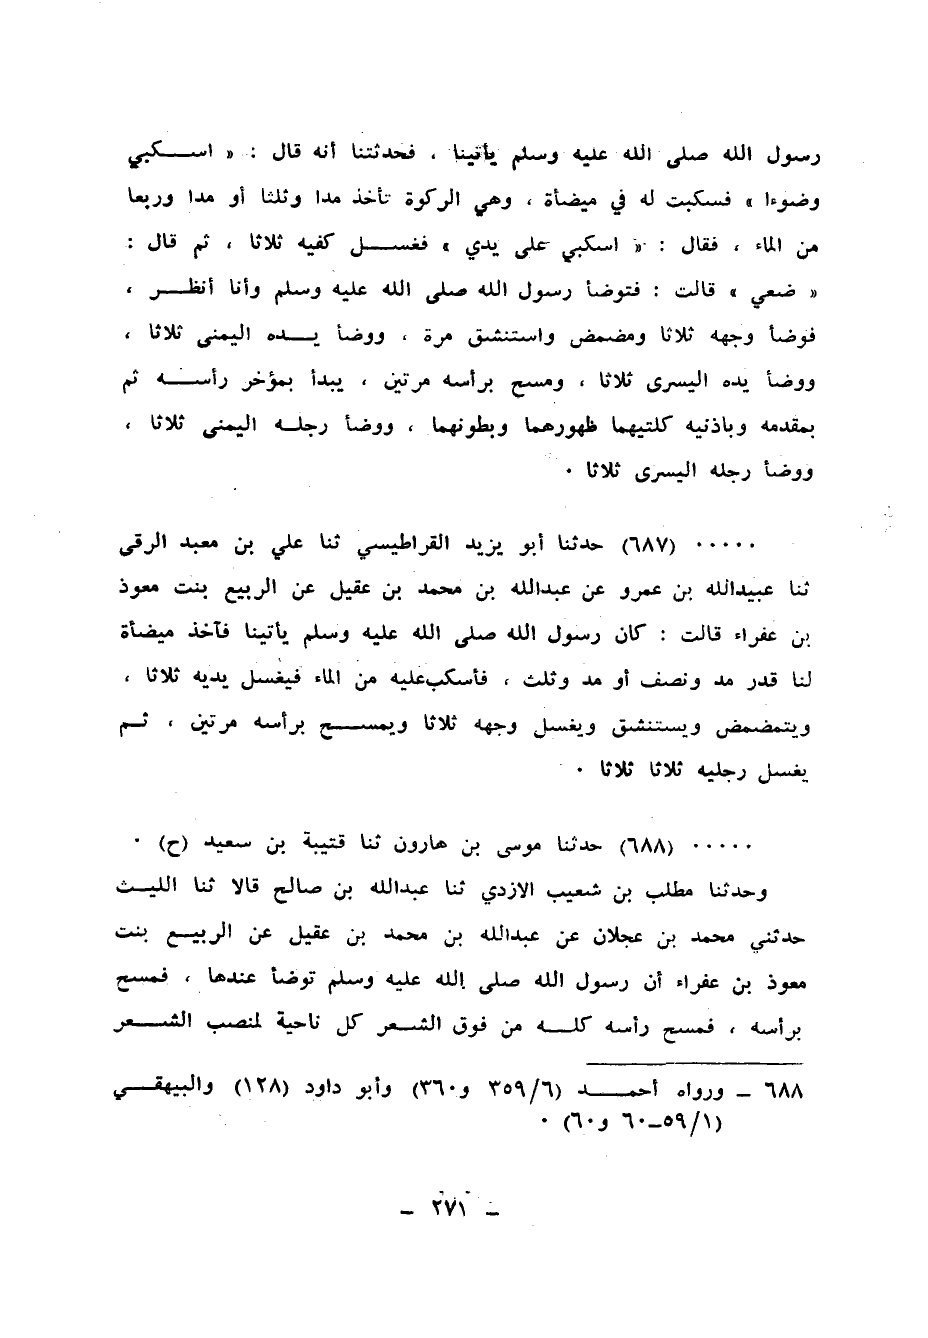 رسول الله صلى الله عليه وسلم يأتينا ، فحدثتنا أنه قال : « اسكبي
وضوءا » فسكبت له في ميضأة ، وهي الركوة تأخذ مدا وثلثا أو مدا وربعا
من الماء ، فقال : « اسكبي على يدي » فغسل كفيه ثلاثا ، ثم قال :
« ضعي » قالت : فتوضأ رسول الله صلى الله عليه وسلم وأنا أنظر ،
فوضأ وجهه ثلاثا ومضمض واستنشق مرة ، ووضأ يده اليمنى ثلاثا ،
ووضأ يده اليسرى ثلاثا ، ومسح برأسه مرتين ، يبدأ بمؤخر رأسه ثم
بمقدمه وباذنيه كلتيهما ظهورهما وبطونهما ، ووضأ رجله اليمنى ثلاثا ،
ووضأ رجله اليسرى ثلاثا ٠
٠٠٠٠٠ (٦٨٧) حدثنا أبو يزيد القراطيسي ثنا علي بن معبد الرقى
ثنا عبيدالله بن عمرو عن عبدالله بن محمد بن عقيل عن الربيع بنت معوذ
بن عفراء قالت : كان رسول الله صلى الله عليه وسلم يأتينا فآخذ ميضأة
لنا قدر مد ونصف أو مد وثلث ، فأسكب عليه من الماء فيغسل يديه ثلاثا ،
ويتمضمض ويستنشق ويغسل وجهه ثلاثا ويمسح برأسه مرتين ، ثم
يغسل رجليه ثلاثا ثلاثا ٠
٠٠٠٠٠ (٦٨٨) حدثنا موسى بن هارون ثنا قتيبة بن سعيد (ح) ٠
وحدثنا مطلب بن شعيب الازدي ثنا عبدالله بن صالح قالا ثنا الليث
حدثني محمد بن عجلان عن عبدالله بن محمد بن عقيل عن الربيع بنت
معوذ بن عفراء أن رسول الله صلى الله عليه وسلم توضأ عندها ، فمسح
برأسه ، فمسح رأسه كله من فوق الشعر كل ناحية لمنصب الشعر
٦٨٨ ـ ورواه أحمد (٣٥٩/٦ و٣٦٠) وأبو داود (١٢٨) والبيهقي
(٥٩/١ـ٦٠ و٦٠) ٠
ـ ٢٧١ ـ